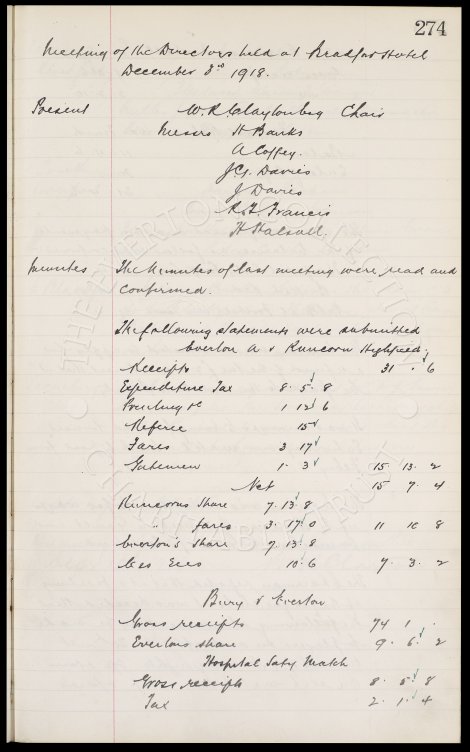 274
Meeting of the Directors held at Bradford Hotel
December 3rd 1918.
Present W.R. Clayton Esq Chair
Messrs H Banks
A Coffey.
J.C. Davies
J Davies
R.F. Francis
H Halsall.
Minutes The Minutes of last meeting were read and
confirmed.
The following statements were submitted
Everton A v Runcorn Highfield.
Receipts 31 . 6
Expenditure Tax 8. 5. 8
Printing &c 1 12 6
Referee 15
Fares 3 17
Gatemen 1. 3 15. 13. 2
Net 15 7. 4
Runcorns Share 7. 13. 8
" fares 3. 17. 0 11 10 8
Everton's Share 7. 13. 8
Less Exes 10. 6 7. 3. 2
Bury v Everton
Gross receipts 74 1 .
Evertons share 9. 6. 2
Hospital Saty Match
Gross receipts 8. 5. 8
Tax 2. 1. 4
THE EVERTON COLLECTION
CHARITABLE TRUST